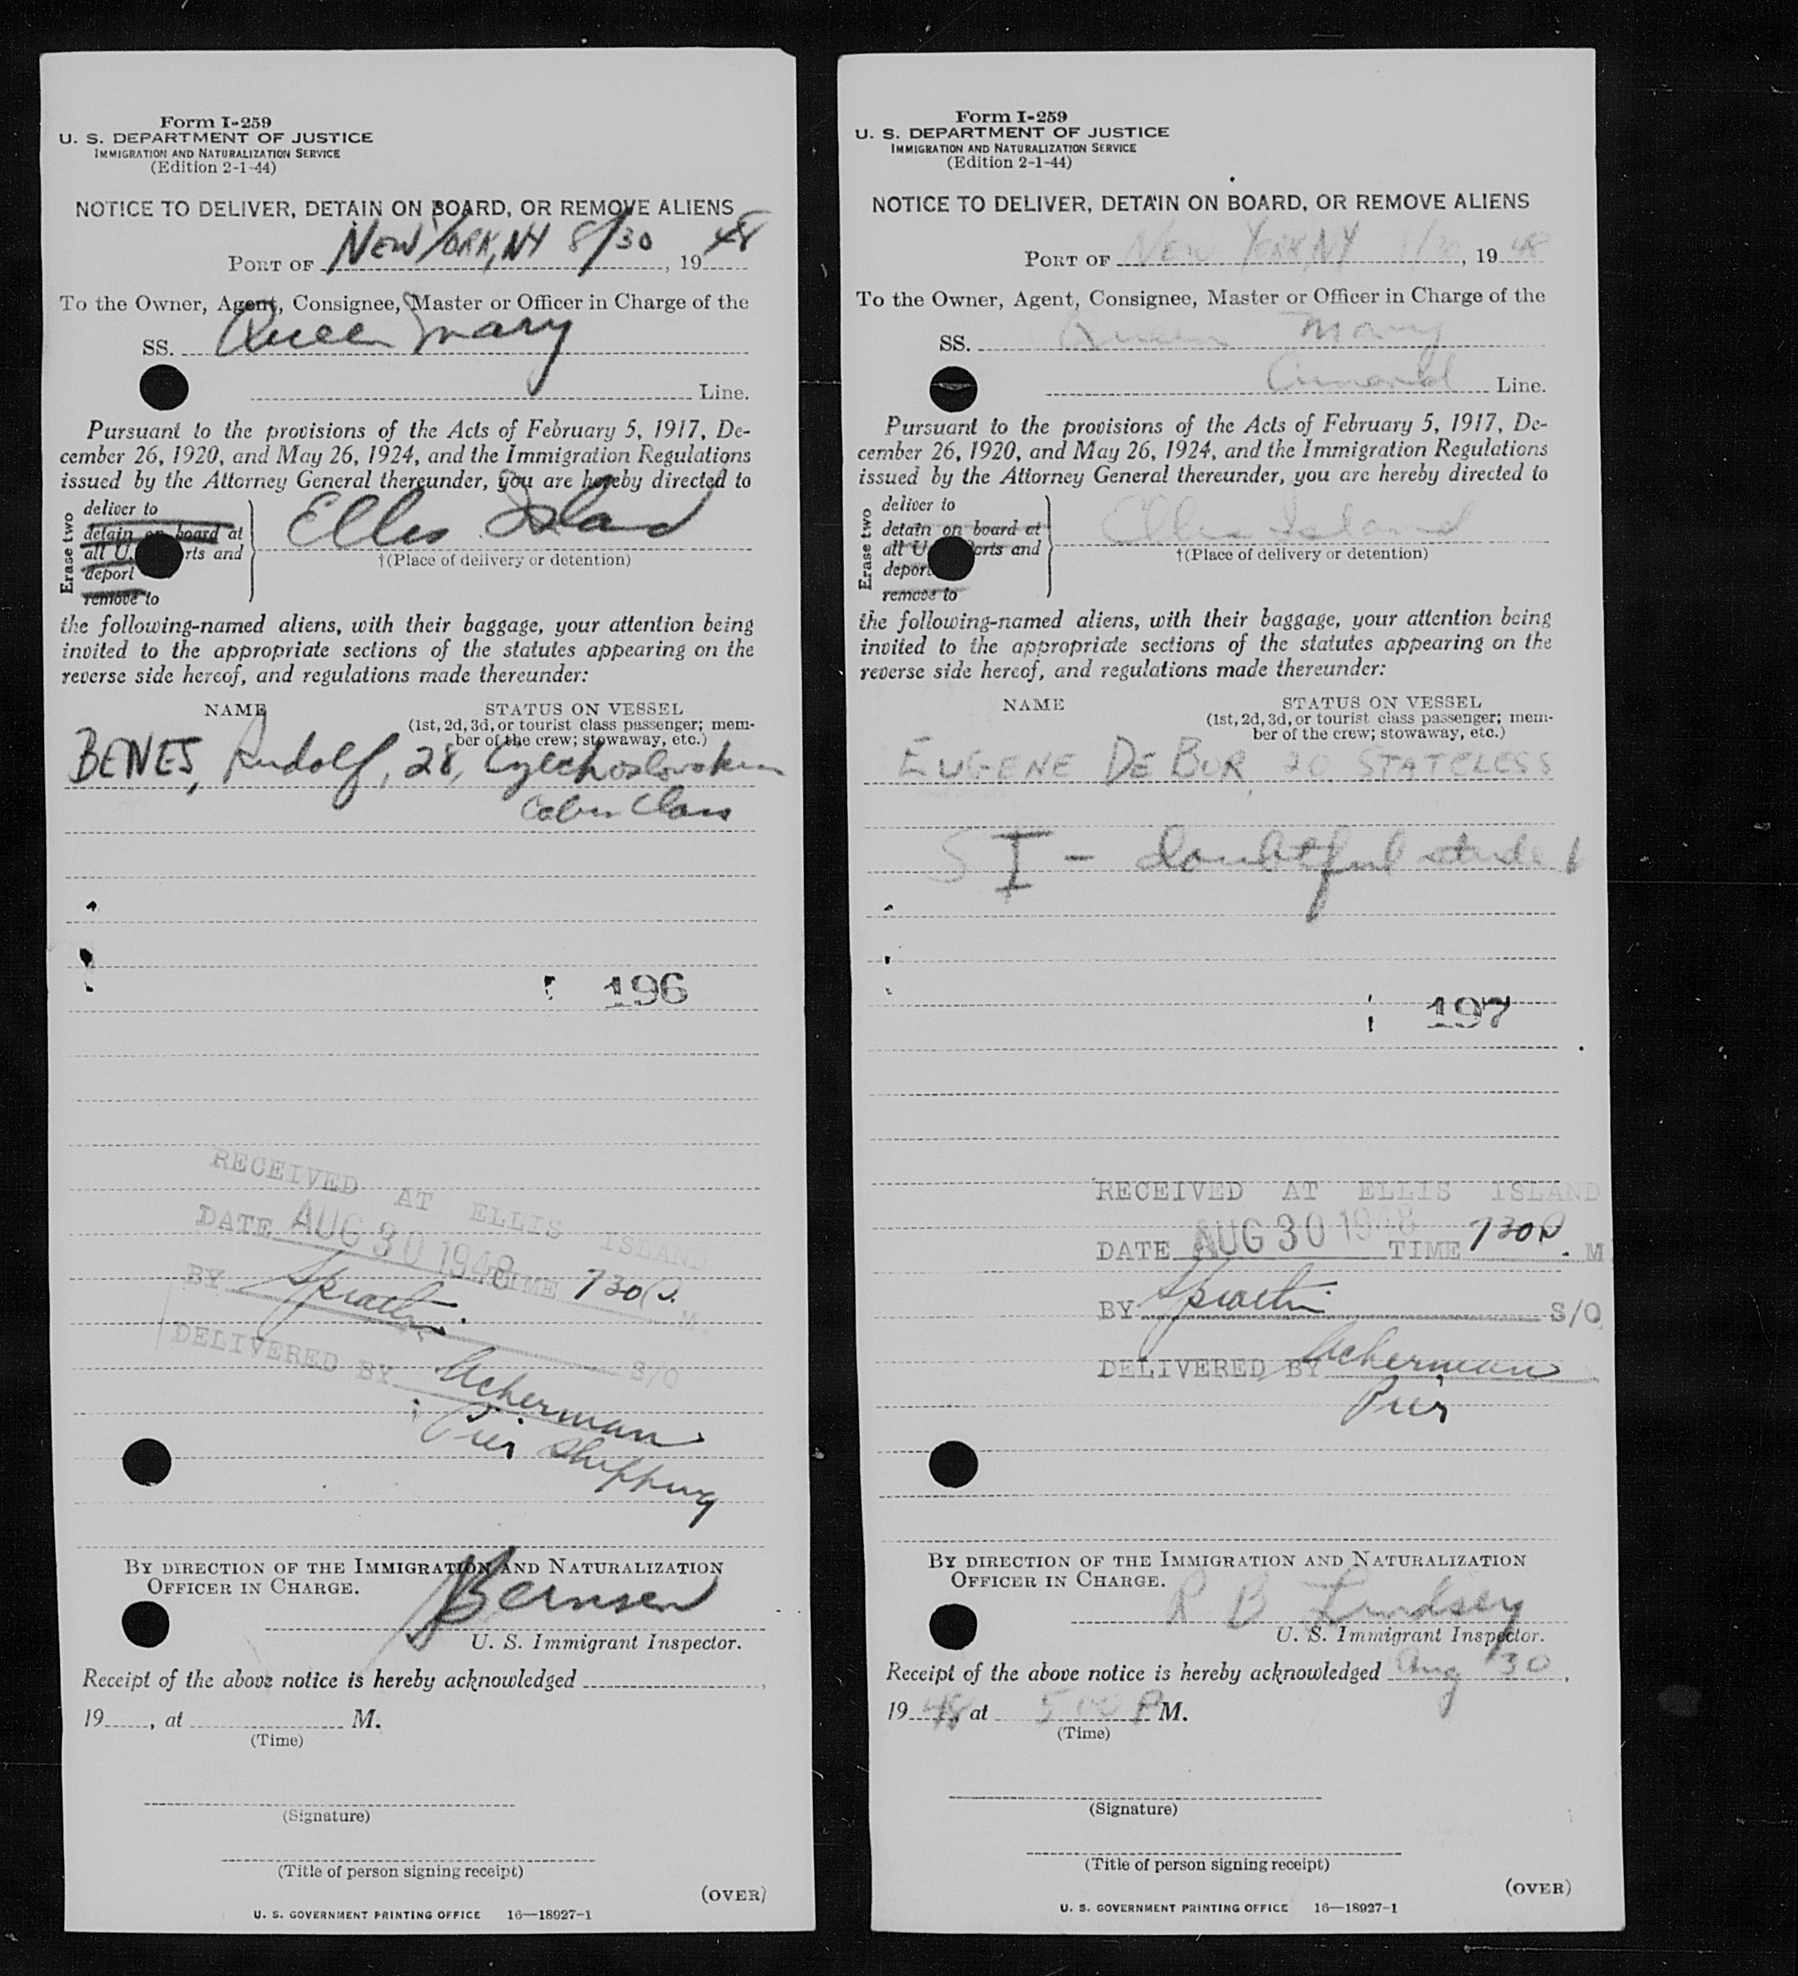 Form I-259
U. S. DEPARTMENT OF JUSTICE
IMMIGRATION AND NATURALIZATION SERVICE
(Edition 2-1-44)
NOTICE TO DELIVER, DETAIN ON BOARD, OR REMOVE ALIENS
PORT OF NEW YORK, NY 8/30, 1948
To the Owner, Agent, Consignee, Master or Officer in Charge of the
SS. Queen Mary
Line.
Pursuant to the provisions of the Acts of February 5, 1917, De-
cember 26, 1920, and May 26, 1924, and the Immigration Regulations
issued by the Attorney General thereunder, you are hereby directed to
Erase two
deliver to
detain on board at
all U. rts and
deport
remove to
Ellis Island
†(Place of delivery or detention)
the following-named aliens, with their baggage, your attention being
invited to the appropriate sections of the statutes appearing on the
reverse side hereof, and regulations made thereunder:
NAME STATUS ON VESSEL
(1st, 2d, 3d, or tourist class passenger; mem-
ber of the crew; stowaway, etc.)
BENES, Rudolf, 28, Czechoslovakian
Cabin Class
196
RECEIVED AT ELLIS ISLAND
DATE AUG 30 1948 TIME 730 P. M.
BY S/O
DELIVERED BY Ackerman
Pier Shipping
BY DIRECTION OF THE IMMIGRATION AND NATURALIZATION
OFFICER IN CHARGE.
Bernsen
U. S. Immigrant Inspector.
Receipt of the above notice is hereby acknowledged ,
19 , at M.
(Time)
(Signature)
(Title of person signing receipt)
(OVER)
U. S. GOVERNMENT PRINTING OFFICE 16—18927-1
Form I-259
U. S. DEPARTMENT OF JUSTICE
IMMIGRATION AND NATURALIZATION SERVICE
(Edition 2-1-44)
NOTICE TO DELIVER, DETAIN ON BOARD, OR REMOVE ALIENS
PORT OF NEW YORK, NY 8/30, 1948
To the Owner, Agent, Consignee, Master or Officer in Charge of the
SS. Queen Mary
Cunard Line.
Pursuant to the provisions of the Acts of February 5, 1917, De-
cember 26, 1920, and May 26, 1924, and the Immigration Regulations
issued by the Attorney General thereunder, you are hereby directed to
Erase two
deliver to
detain on board at
all U orts and
deport
remove to
Ellis Island
†(Place of delivery or detention)
the following-named aliens, with their baggage, your attention being
invited to the appropriate sections of the statutes appearing on the
reverse side hereof, and regulations made thereunder:
NAME STATUS ON VESSEL
(1st, 2d, 3d, or tourist class passenger; mem-
ber of the crew; stowaway, etc.)
EUGENE DE BUR 20 STATELESS
SI - doubtful student
197
RECEIVED AT ELLIS ISLAND
DATE AUG 30 1948 TIME 730 P. M
BY S/O
DELIVERED BY Ackerman
Pier
BY DIRECTION OF THE IMMIGRATION AND NATURALIZATION
OFFICER IN CHARGE.
R B Lindsey
U. S. Immigrant Inspector.
Receipt of the above notice is hereby acknowledged Aug 30,
1948, at 5 00 P M.
(Time)
(Signature)
(Title of person signing receipt)
(OVER)
U. S. GOVERNMENT PRINTING OFFICE 16—18927-1